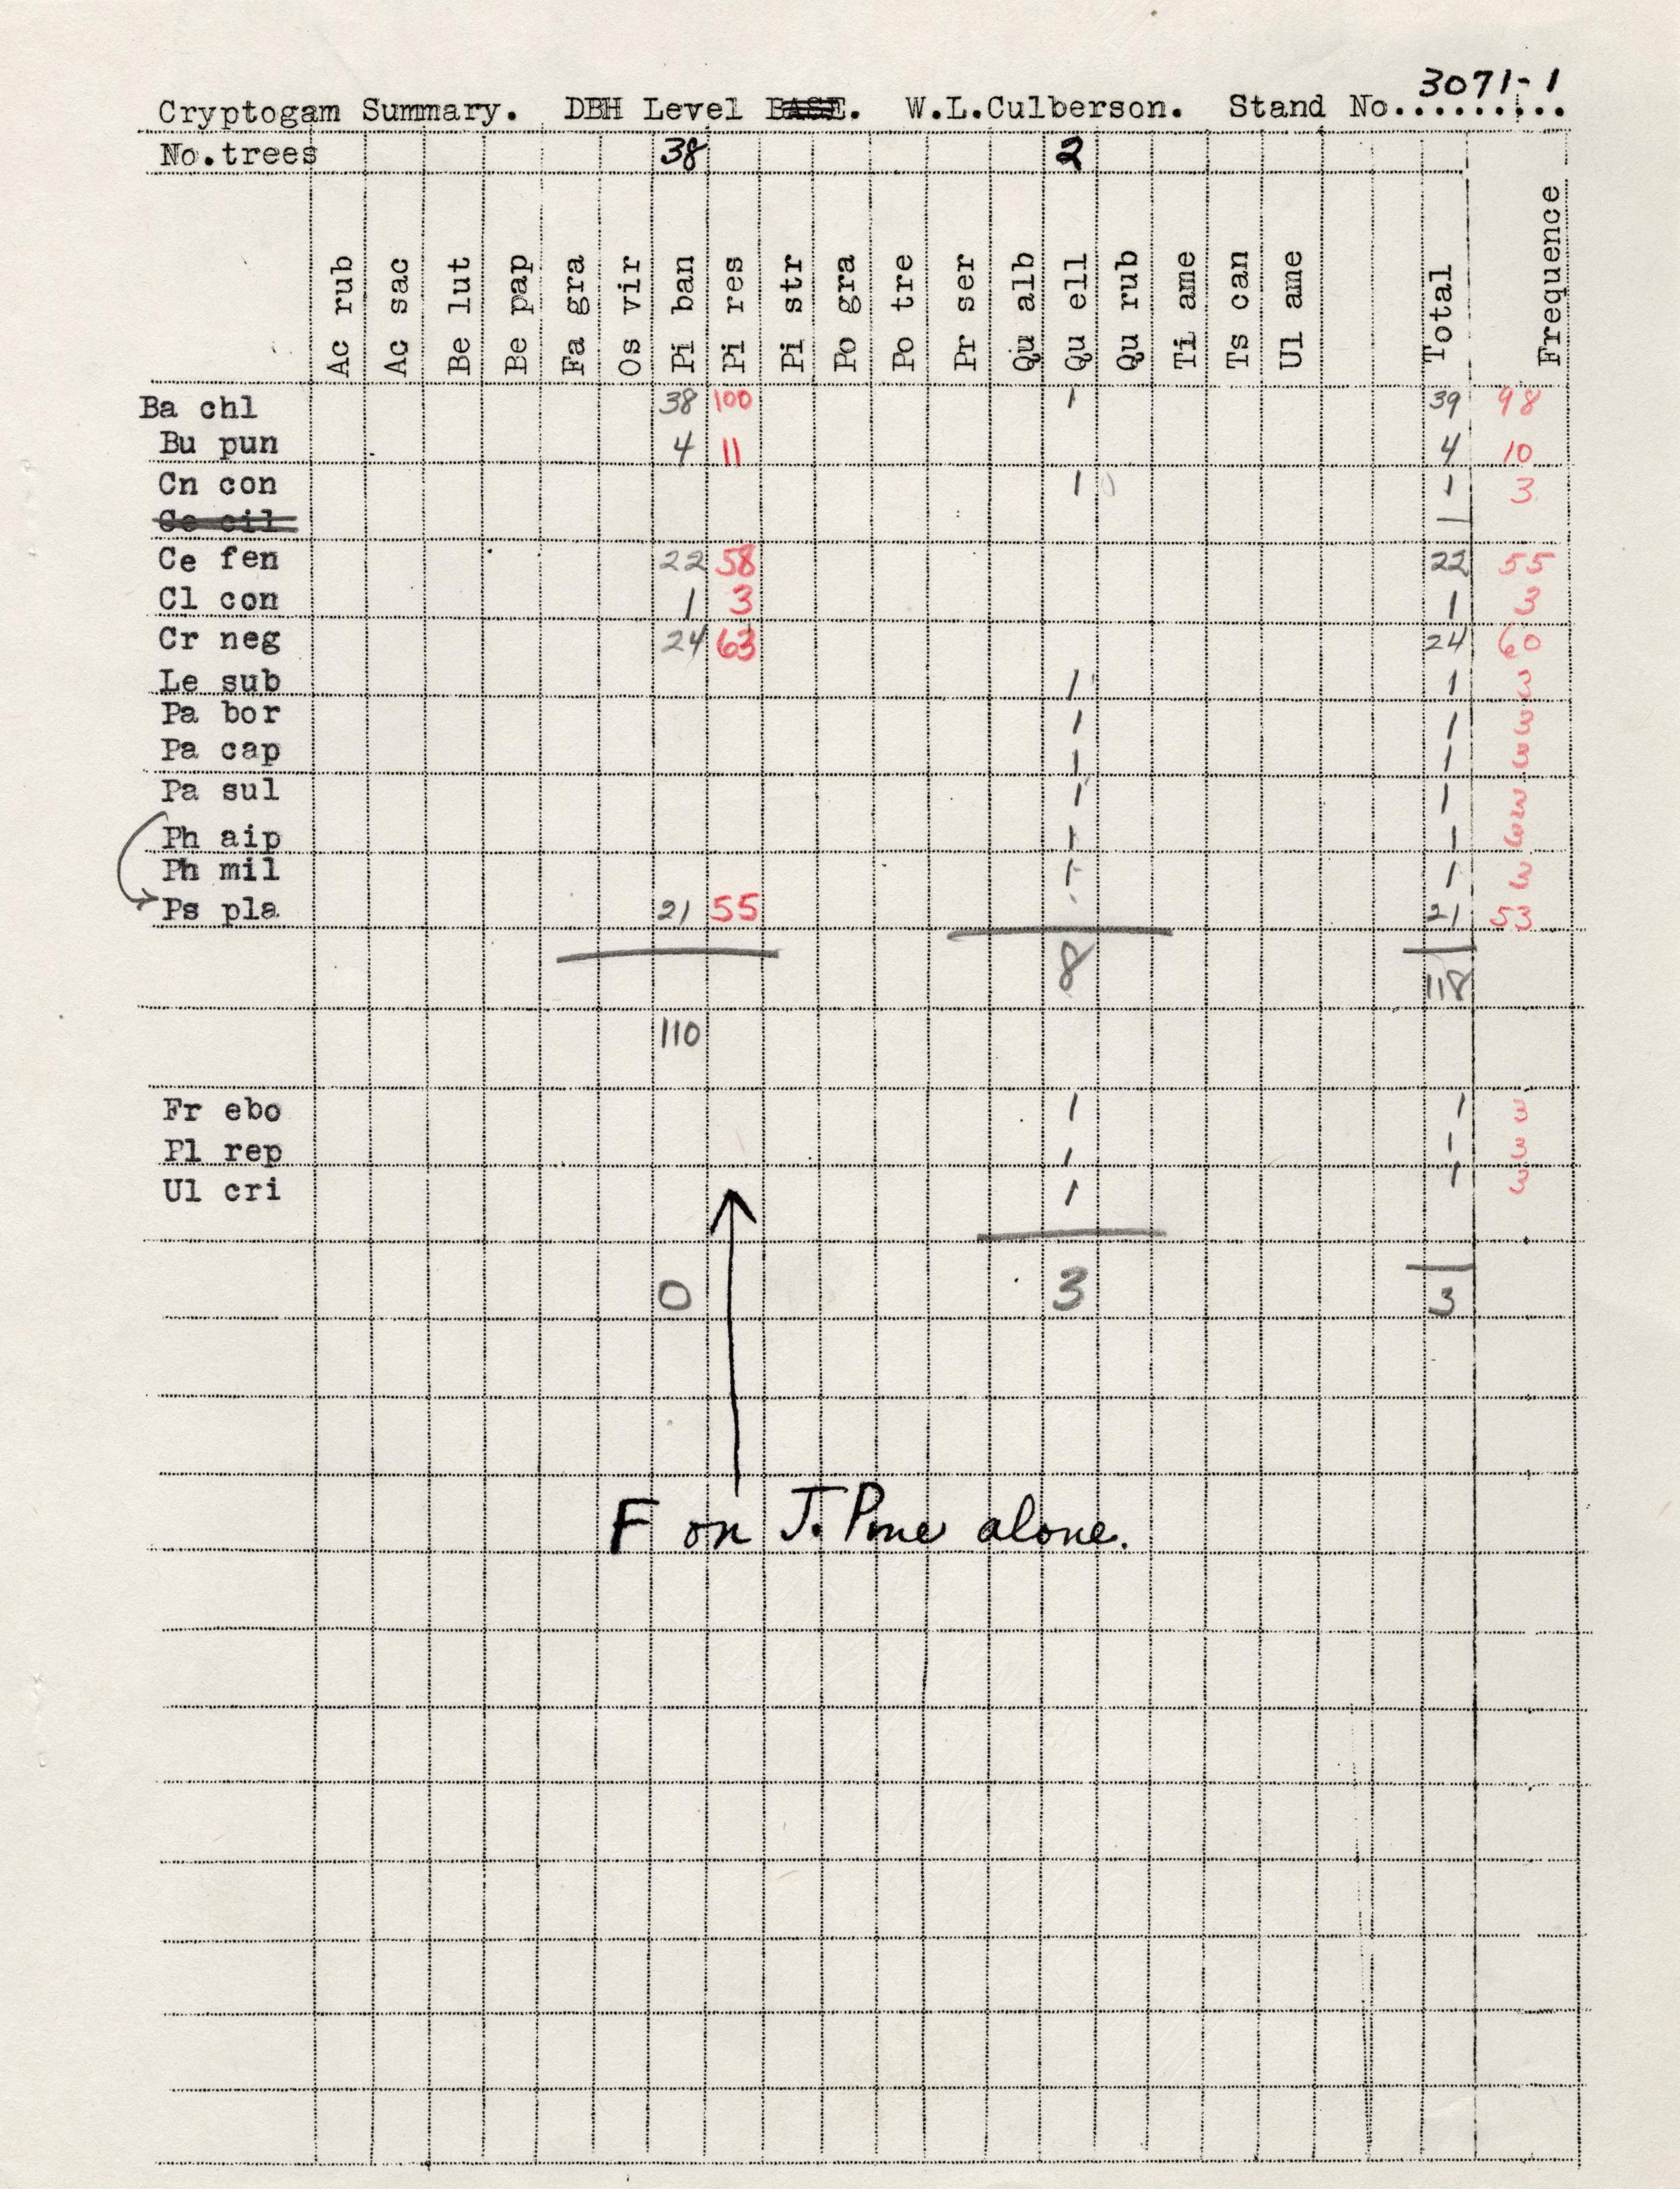 3071-1
Cryptogam Summary. DBH Level BASE. W.L.Culberson. Stand No.........
No.trees 38 2
Ac rub Ac sac Be lut Be pap Fa gra Os vir Pi ban Pi res Pi str Po gra Po tre Pr ser Qu alb Qu ell Qu rub Ti ame Ts can Ul ame Total Frequence
Ba chl 38 100 1 39 98
Bu pun 4 11 4 10
Cn con 1 0 1 3
Ce cil —
Ce fen 22 58 22 55
Cl con 1 3 1 3
Cr neg 24 63 24 60
Le sub 1 1 3
Pa bor 1 1 3
Pa cap 1 1 3
Pa sul 1 1 3
Ph aip 1 1 3
Ph mil 1 1 3
Ps pla 21 55 21 53
8 118
110
Fr ebo 1 1 3
Pl rep 1 1 3
Ul cri 1 1 3
0 3 3
F on J. Pine alone.